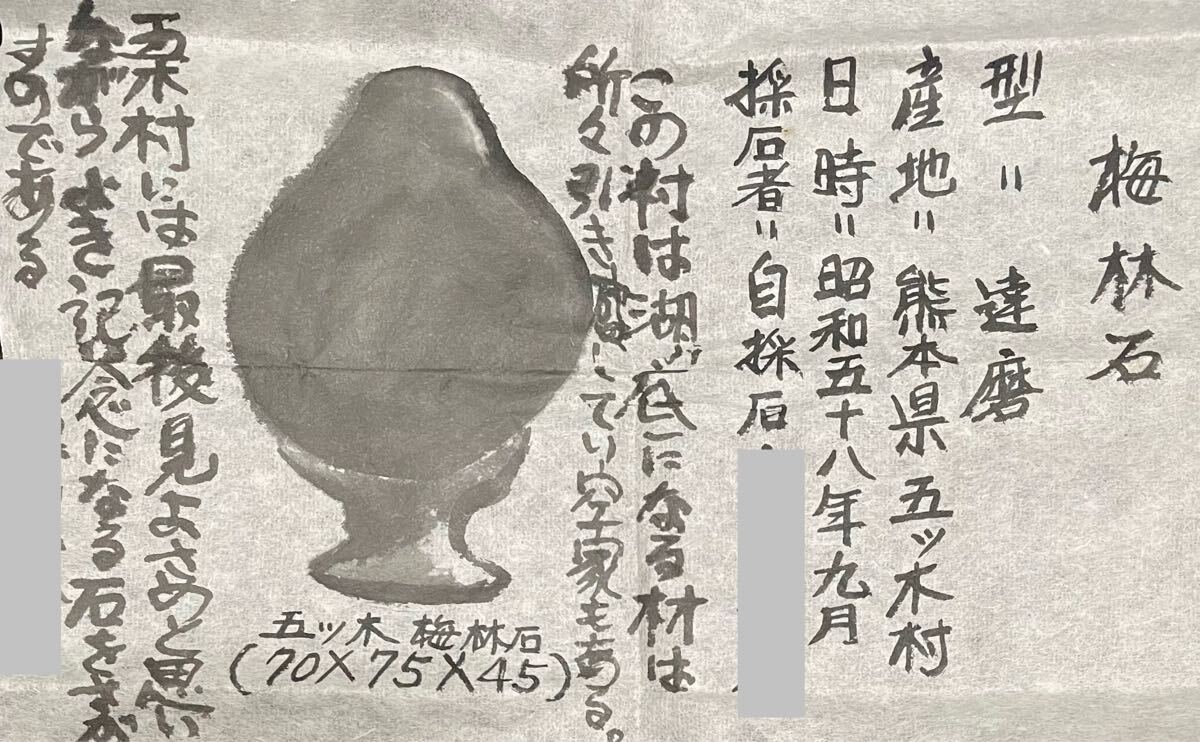 梅林石
型＝達磨
産地＝熊本県五ッ木村
日時＝昭和五十八年九月
採石者＝自採石・
この村は湖底になる材は
所々引きしてり空家もある。
五ッ木 梅林石
(70×75×45)
五木村には最後見よさめと思い
ながらよき記念になる石をさが
すのである